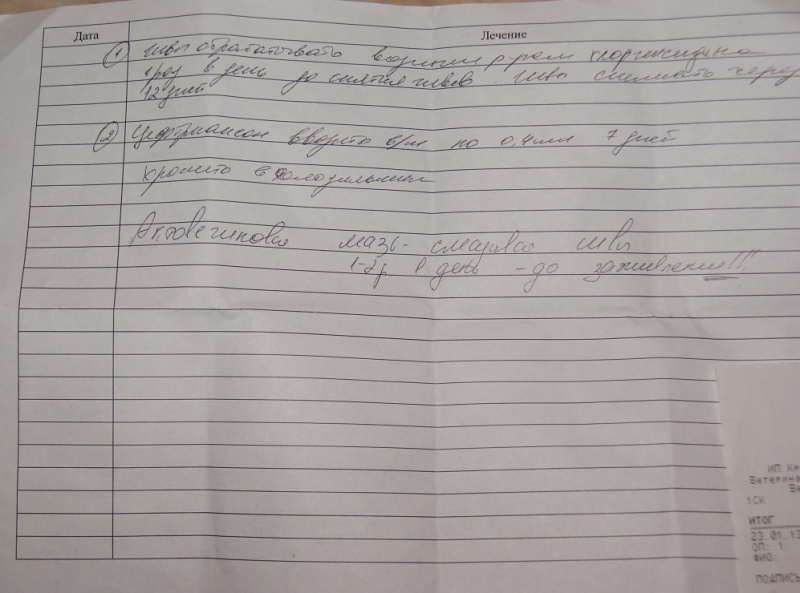 Дата
Лечение
① Швы обрабатывать водным р-ром хлоргексидина
1 раз в день до снятия швов. Швы снимать через
12 дней
② Цефтриаксон вводить в/м по 0,4 мл 7 дней
хранить в холодильнике
Актовегиновая мазь - смазывать швы
1-2 р. в день - до заживления!!!
ИП Кр
Ветерина
Ве
1СК
ИТОГ
23.01.13
ОП: 1
ФИО:
ПОДПИСЬ